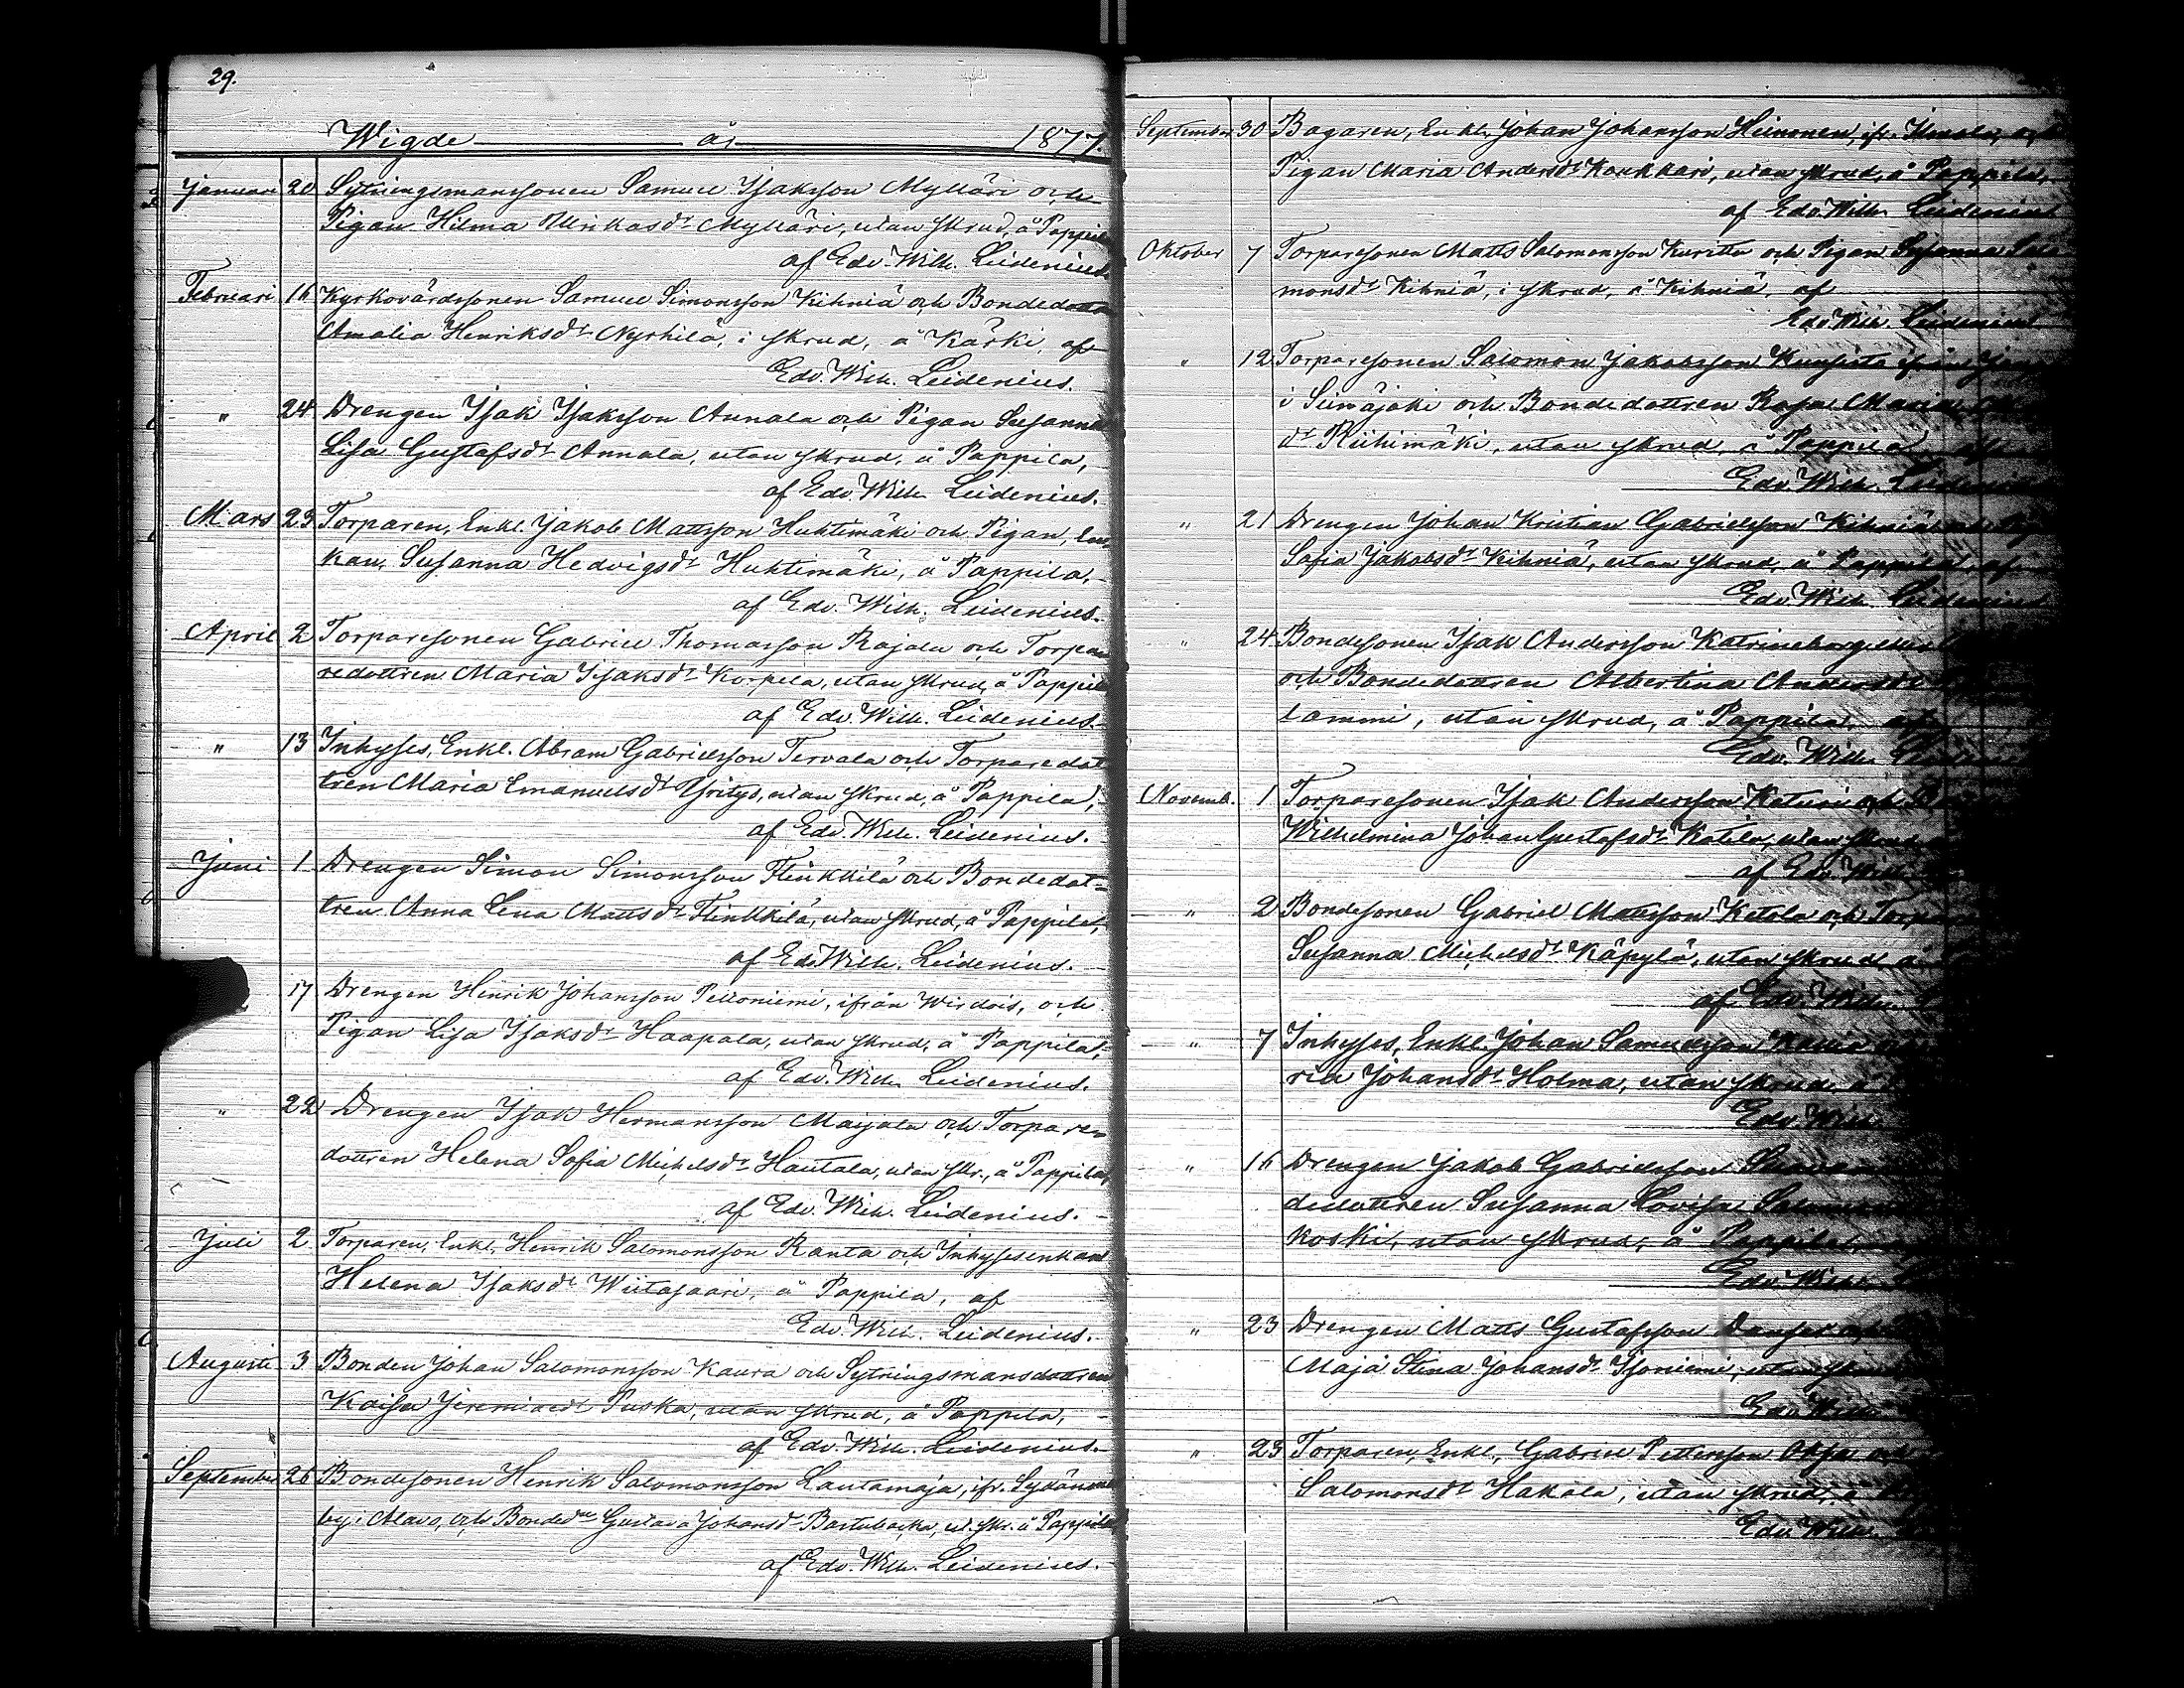 29.
Wigde år 1877.
Januari 20 Sytningsmanssonen Samuel Isaksson Mylläri och
Pigan Hilma Ulrikasdr Mylläri, utan skrud, å Pappila
af Edv. Wilh. Leidenius.
Februari 16 Kyrkovärdssonen Samuel Simonsson Kihniä och Bondedottren
Amalia Henriksdr Nyrhilä, i skrud, å Kärki, af
Edv. Wilh. Leidenius.
" 24 Drengen Isak Isaksson Annala och Pigan Susanna
Lisa Gustafsdr Annala, utan skrud, å Pappila,
af Edv. Wilh. Leidenius.
Mars 23 Torparen, Enkl. Jakob Mattsson Huhtimäki och Pigan, En-
kan, Susanna Hedvigsdr Huhtimäki, å Pappila,
af Edv. Wilh. Leidenius.
April 2 Torparesonen Gabriel Thomasson Rajala och Torpa-
redottren Maria Isaksdr Korpela, utan skrud, å Pappila
af Edv. Wilh. Leidenius.
" 13 Inhyses, Enkl. Abram Gabrielsson Tervala och Torparedot-
tren Maria Emanuelsdr Yritys, utan skrud, å Pappila,
af Edv. Wilh. Leidenius.
Juni 1 Drengen Simon Simonsson Flinkkilä och Bondedot-
tren Anna Lena Mattsdr Flinkkilä, utan skrud, å Pappila,
af Edv. Wilh. Leidenius.
17 Drengen Henrik Johansson Pelloniemi, ifrån Wirdois, och
Pigan Lisa Isaksdr Haapala, utan skrud, å Pappila,
af Edv. Wilh. Leidenius.
" 22 Drengen Isak Hermansson Maijala och Torpare-
dottren Helena Sofia Michelsdr Hautala, utan skr., å Pappila,
af Edv. Wilh. Leidenius.
Juli 2 Torparen, Enkl. Henrik Salomonsson Ranta och Inhysesenkan
Helena Isaksdr Wiitasaari, å Pappila, af
Edv. Wilh. Leidenius.
Augusti 3 Bonden Johan Salomonsson Kaura och Sytningsmansdottren
Kaisa Jeremiaedr Puska, utan skrud, å Pappila,
af Edv. Wilh. Leidenius.
September 26 Bondesonen Henrik Salomonsson Lautamaja, ifr. Sydänmaa
by i Alavo, och Bondedn Gustava Johansdr Bastubacka, ut. skr. å Pappila
af Edv. Wilh. Leidenius.
September 30 Bagaren, Enkl. Johan Johansson Heinonen, ifr. Ilmola, och
Pigan Maria Andersdr Koukkari, utan skrud, å Pappila,
af Edv. Wilh. Leidenius
Oktober 7 Torparesonen Matts Salomonsson Kuritto och Pigan Susanna Salo-
monsdr Kihniä, i skrud, å Kihniä, af
Edv. Wilh. Leidenius
" 12 Torparesonen Salomon Jakobsson ifrån
i Seinäjoki och Bondedottren Kajsa Maria
dr Riihimäki, utan skrud, å Pappila, af
Edv. Wilh. Leidenius
" 21 Drengen Johan Kristian Gabrielsson Kihniä och
Sofia Jakobsdr Kihniä, utan skrud, å Pappila, af
Edv. Wilh. Leidenius
" 24 Bondesonen Isak Andersson Katrineborg
och Bondedottren Albertina Andersdr
lammi, utan skrud, å Pappila, af
Edv. Wilh.
Novemb. 1 Torparesonen Isak Andersson Katuri och
Wilhelmina Johan Gustafsdr Katila, utan skrud,
af Edv. Wilh.
" 2 Bondesonen Gabriel Mattsson Ketola och Torpare
Susanna Michelsdr Käpylä, utan skrud, å
af Edv. Wilh.
" 7 Inhyses, Enkl. Johan Samuelsson
ria Johansdr Holma, utan skrud, å
Edv. Wilh.
" 16 Drengen Jakob Gabrielsson
dedottren Susanna Lovisa Salomons
koski, utan skrud, å Pappila,
Edv. Wilh.
" 23 Drengen Matts Gustafsson och
Maja Stina Johansdr Isoniemi, utan skrud
Edv. Wilh.
" 23 Torparen, Enkl., Gabriel Pettersson och
Salomonsdr Hakala, utan skrud, å
Edv. Wilh.